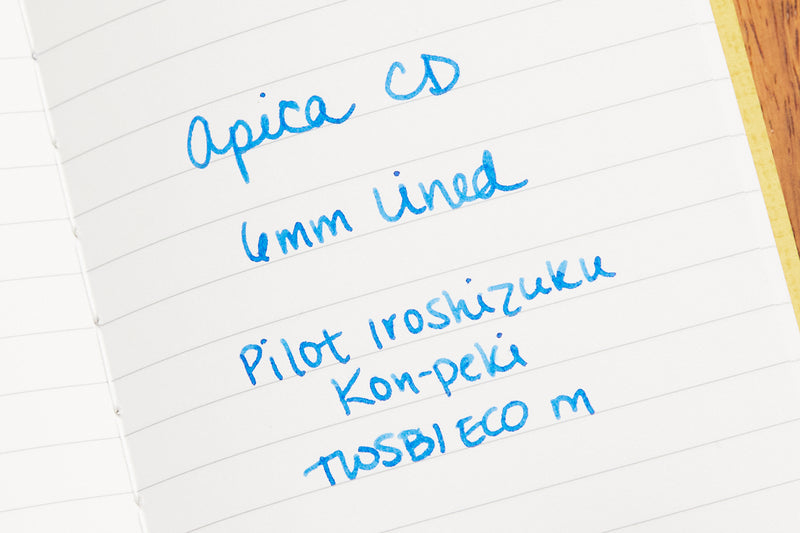 Apica CD
6mm lined
Pilot iroshizuku
Kon-peki
TWSBI ECO M